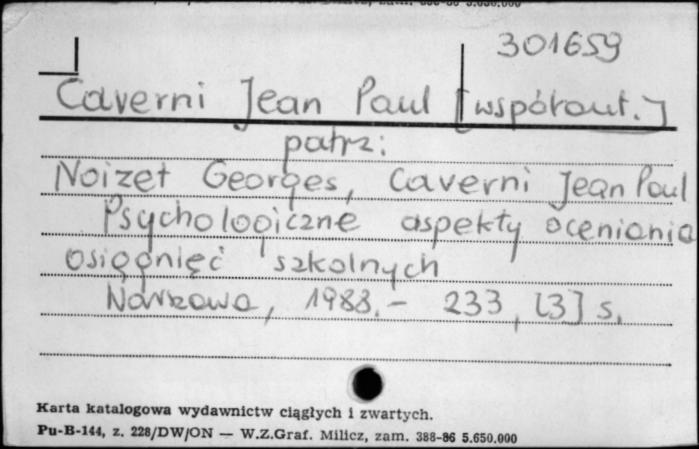 301659
Caverni Jean Paul [współaut.]
patrz:
Noizet Georges, Caverni Jean Paul
Psychologiczne aspekty oceniania
osiągnięć szkolnych
Warszawa, 1988.- 233, [3] s.
Karta katalogowa wydawnictw ciągłych i zwartych.
Pu-B-144, z. 228/DW/ON — W.Z.Graf. Milicz, zam. 388-86 5.650.000